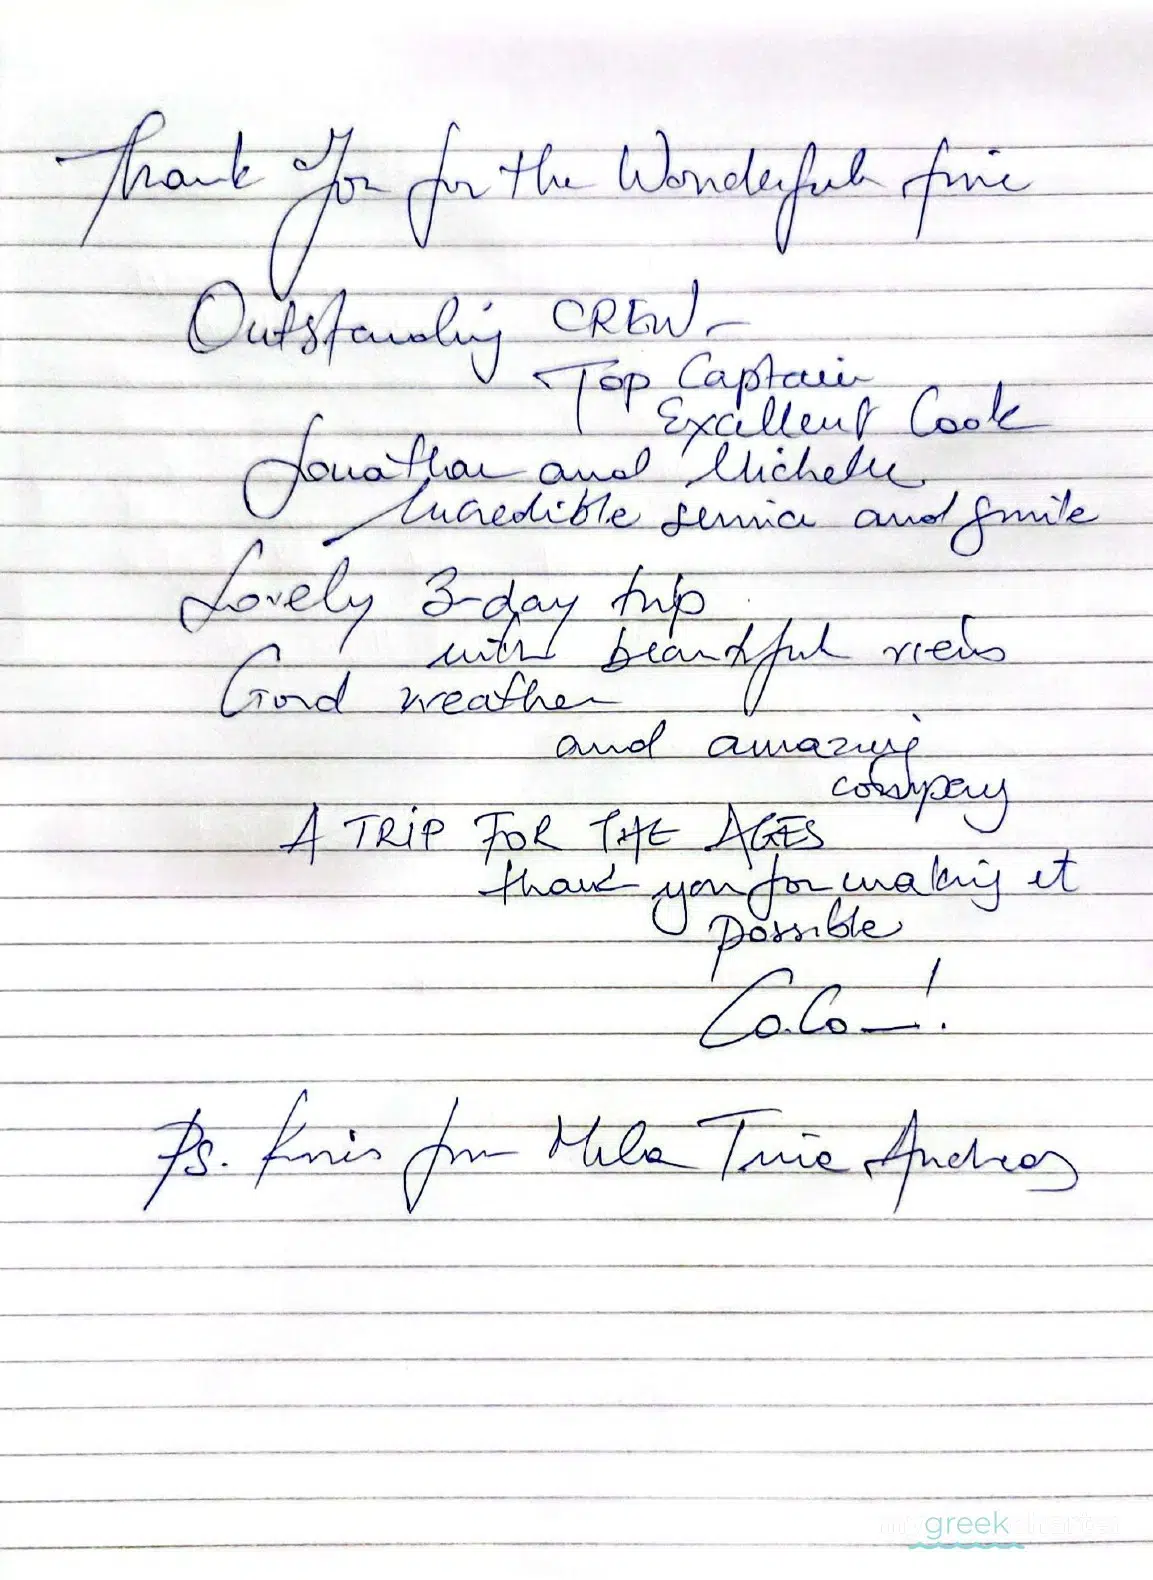 Thank You for the Wonderful time
Outstanding CREW-
Top Captain
Excellent Cook
Jonathan and Michelle
Incredible service and smile
Lovely 3-day trip
with beautiful views
Good weather
and amazing
company
A TRIP FOR THE AGES
thank you for making it
possible
Co.Co!
Ps. from Mela Tina Andreas
my greek charter